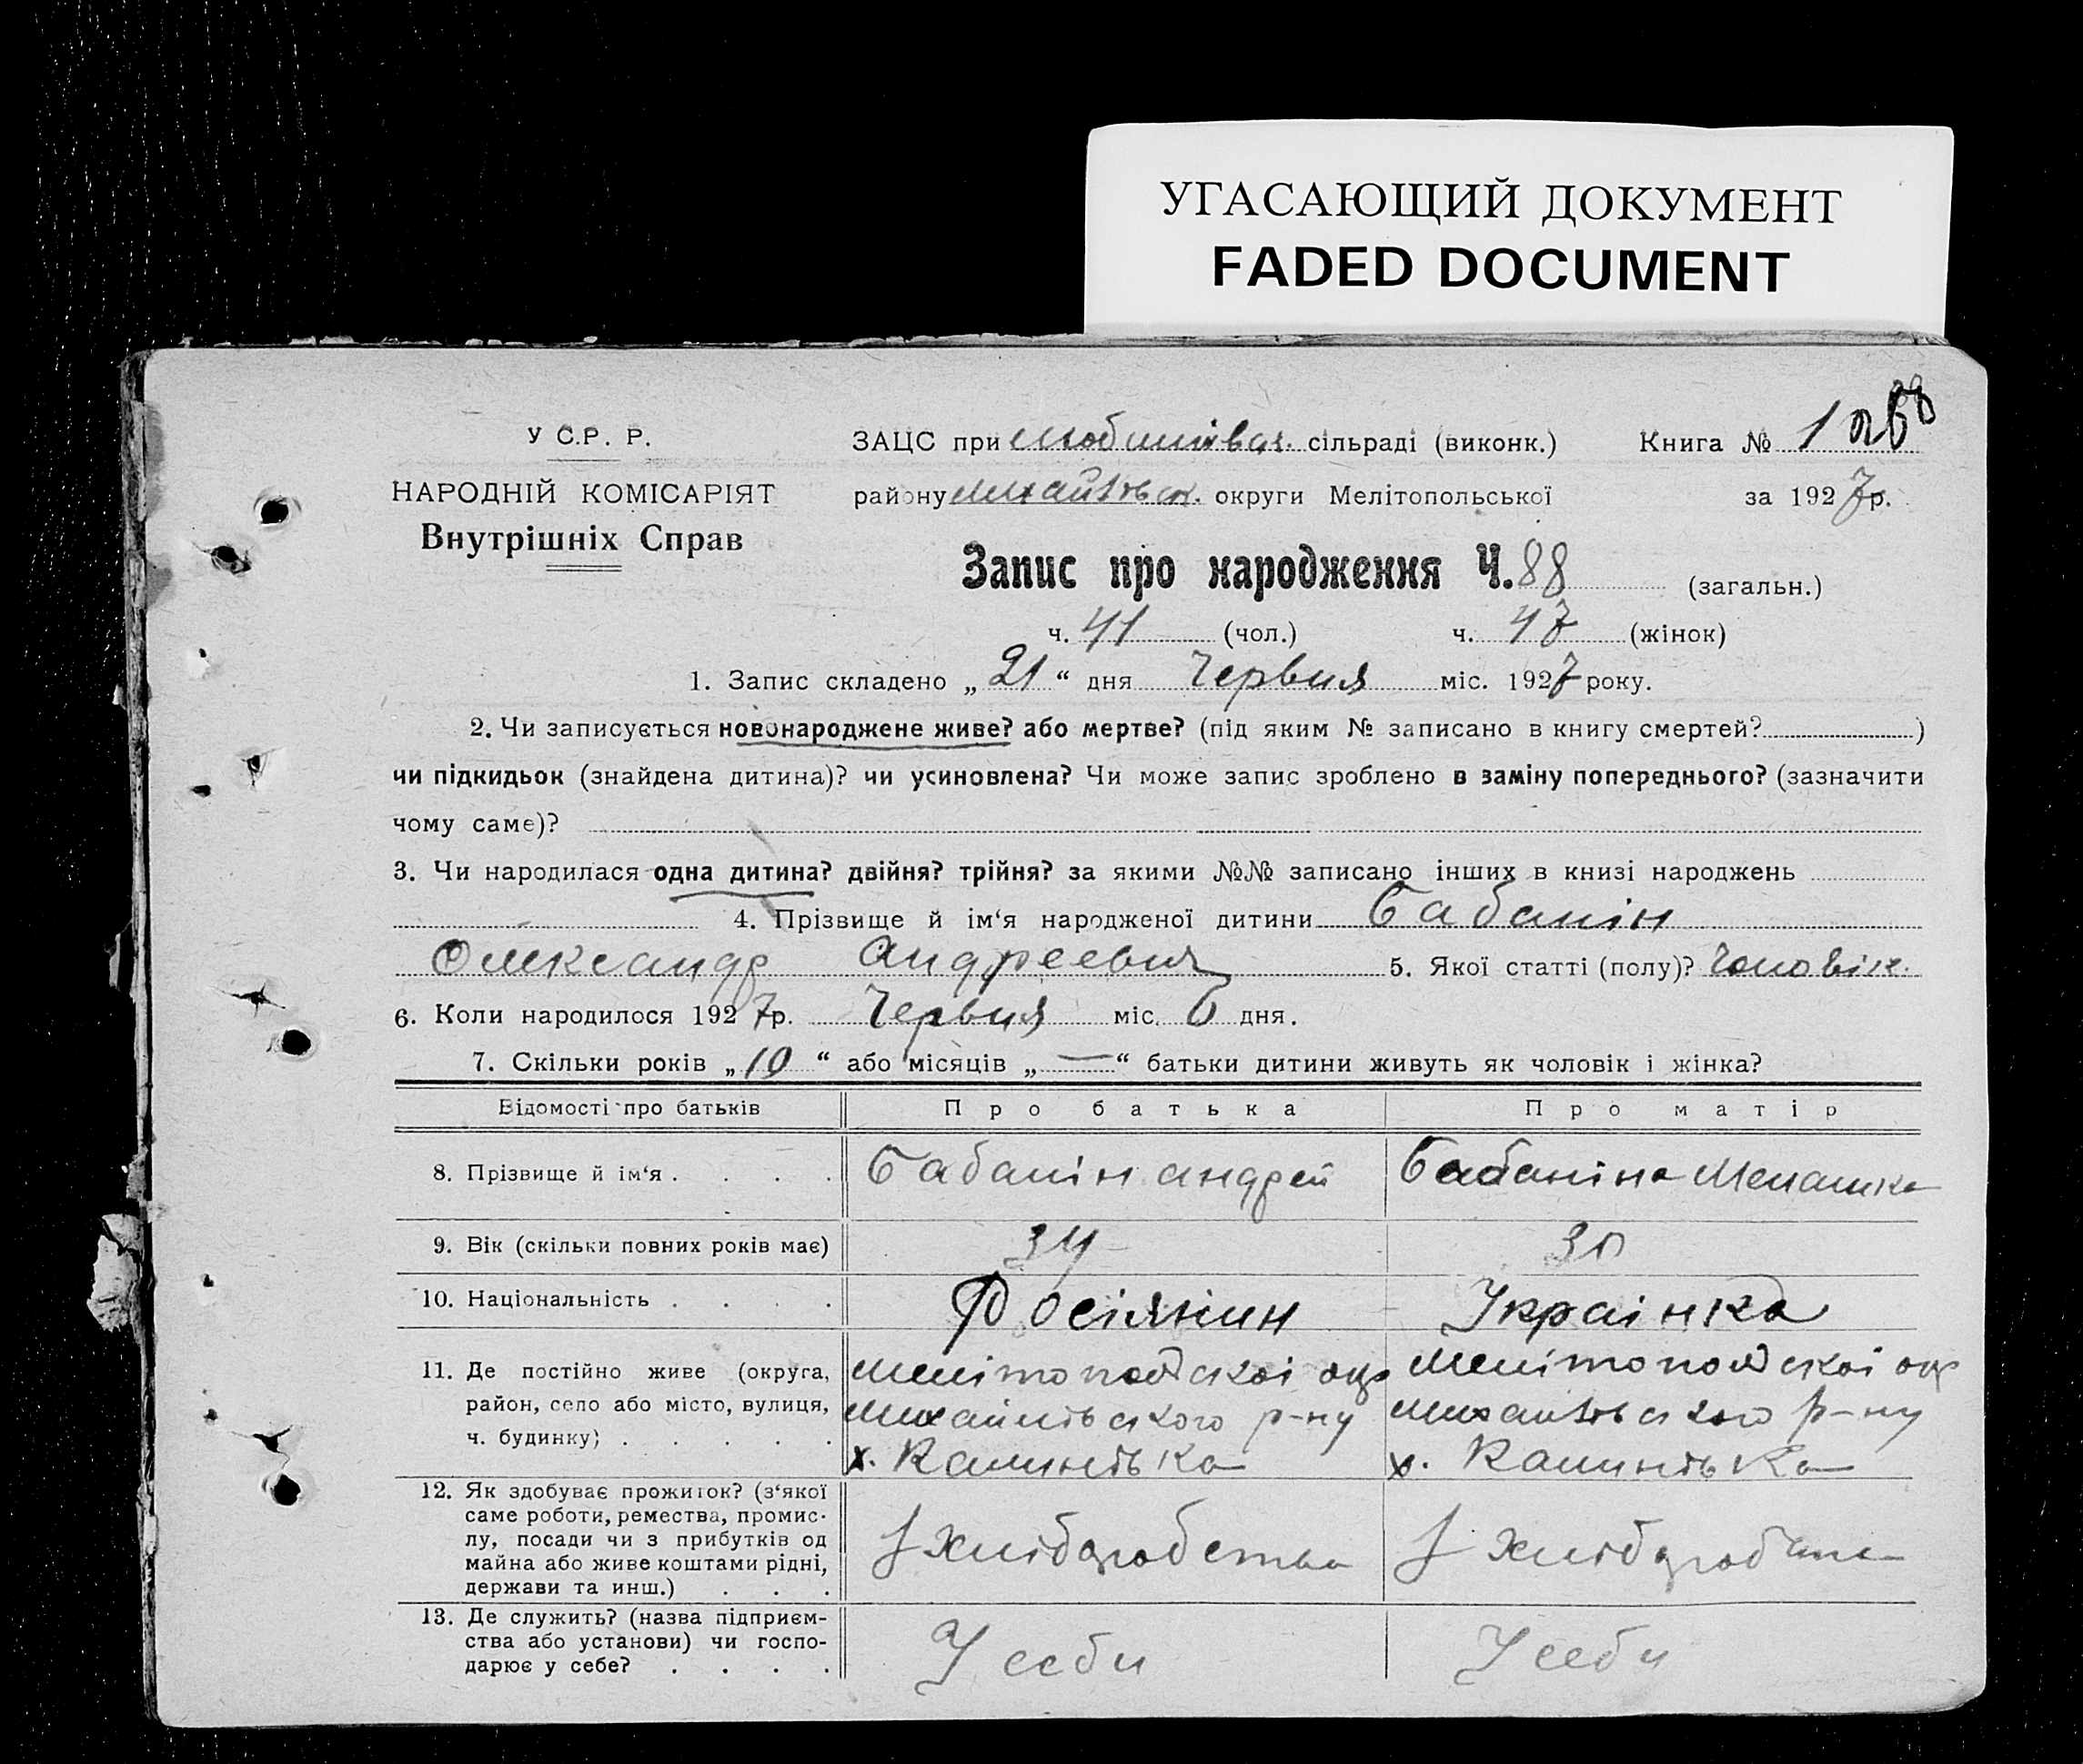 УГАСАЮЩИЙ ДОКУМЕНТ
FADED DOCUMENT
88
У С.Р. Р.
НАРОДНІЙ КОМІСАРІЯТ
Внутрішніх Справ
ЗАЦС при Любимівськ. сільраді (виконк.) Книга № 1
району Михайлівськ. округи Мелітопольської за 1927р.
Запис про народження Ч. 88 (загальн.)
ч. 41 (чол.) ч. 47 (жінок)
1. Запис складено „21“ дня Червня міс. 1927 року.
2. Чи записується новонароджене живе? або мертве? (під яким № записано в книгу смертей? )
чи підкидьок (знайдена дитина)? чи усиновлена? Чи може запис зроблено в заміну попереднього? (зазначити
чому саме)?
3. Чи народилася одна дитина? двійня? трійня? за якими №№ записано інших в книзі народжень
4. Прізвище й ім‘я народженої дитини Бабанін
Олександр Андреевич 5. Якої статті (полу)? Чоловік.
6. Коли народилося 1927р. Червня міс. 6 дня.
7. Скільки років „10“ або місяців „—“ батьки дитини живуть як чоловік і жінка?
Відомості про батьків Про батька Про матір
8. Прізвище й ім‘я . . . . Бабанін Андрей Бабаніна Меланка
9. Вік (скільки повних років має) 34 30
10. Національність . . . . Росіянин Українка
11. Де постійно живе (округа, Мелітопольскої окр Мелітопольскої окр
район, село або місто, вулиця, Михайлівського р-ну Михайлівського р-ну
ч. будинку) . . . . . х. Калинівка х. Калинівка
12. Як здобуває прожиток? (з‘якої
саме роботи, ремества, промис-
лу, посади чи з прибутків од
майна або живе коштами рідні,
держави та инш.) . . . З хліборобства З хліборобства
13. Де служить? (назва підприєм-
ства або установи) чи госпо-
дарює у себе? . . . . У себи У себи